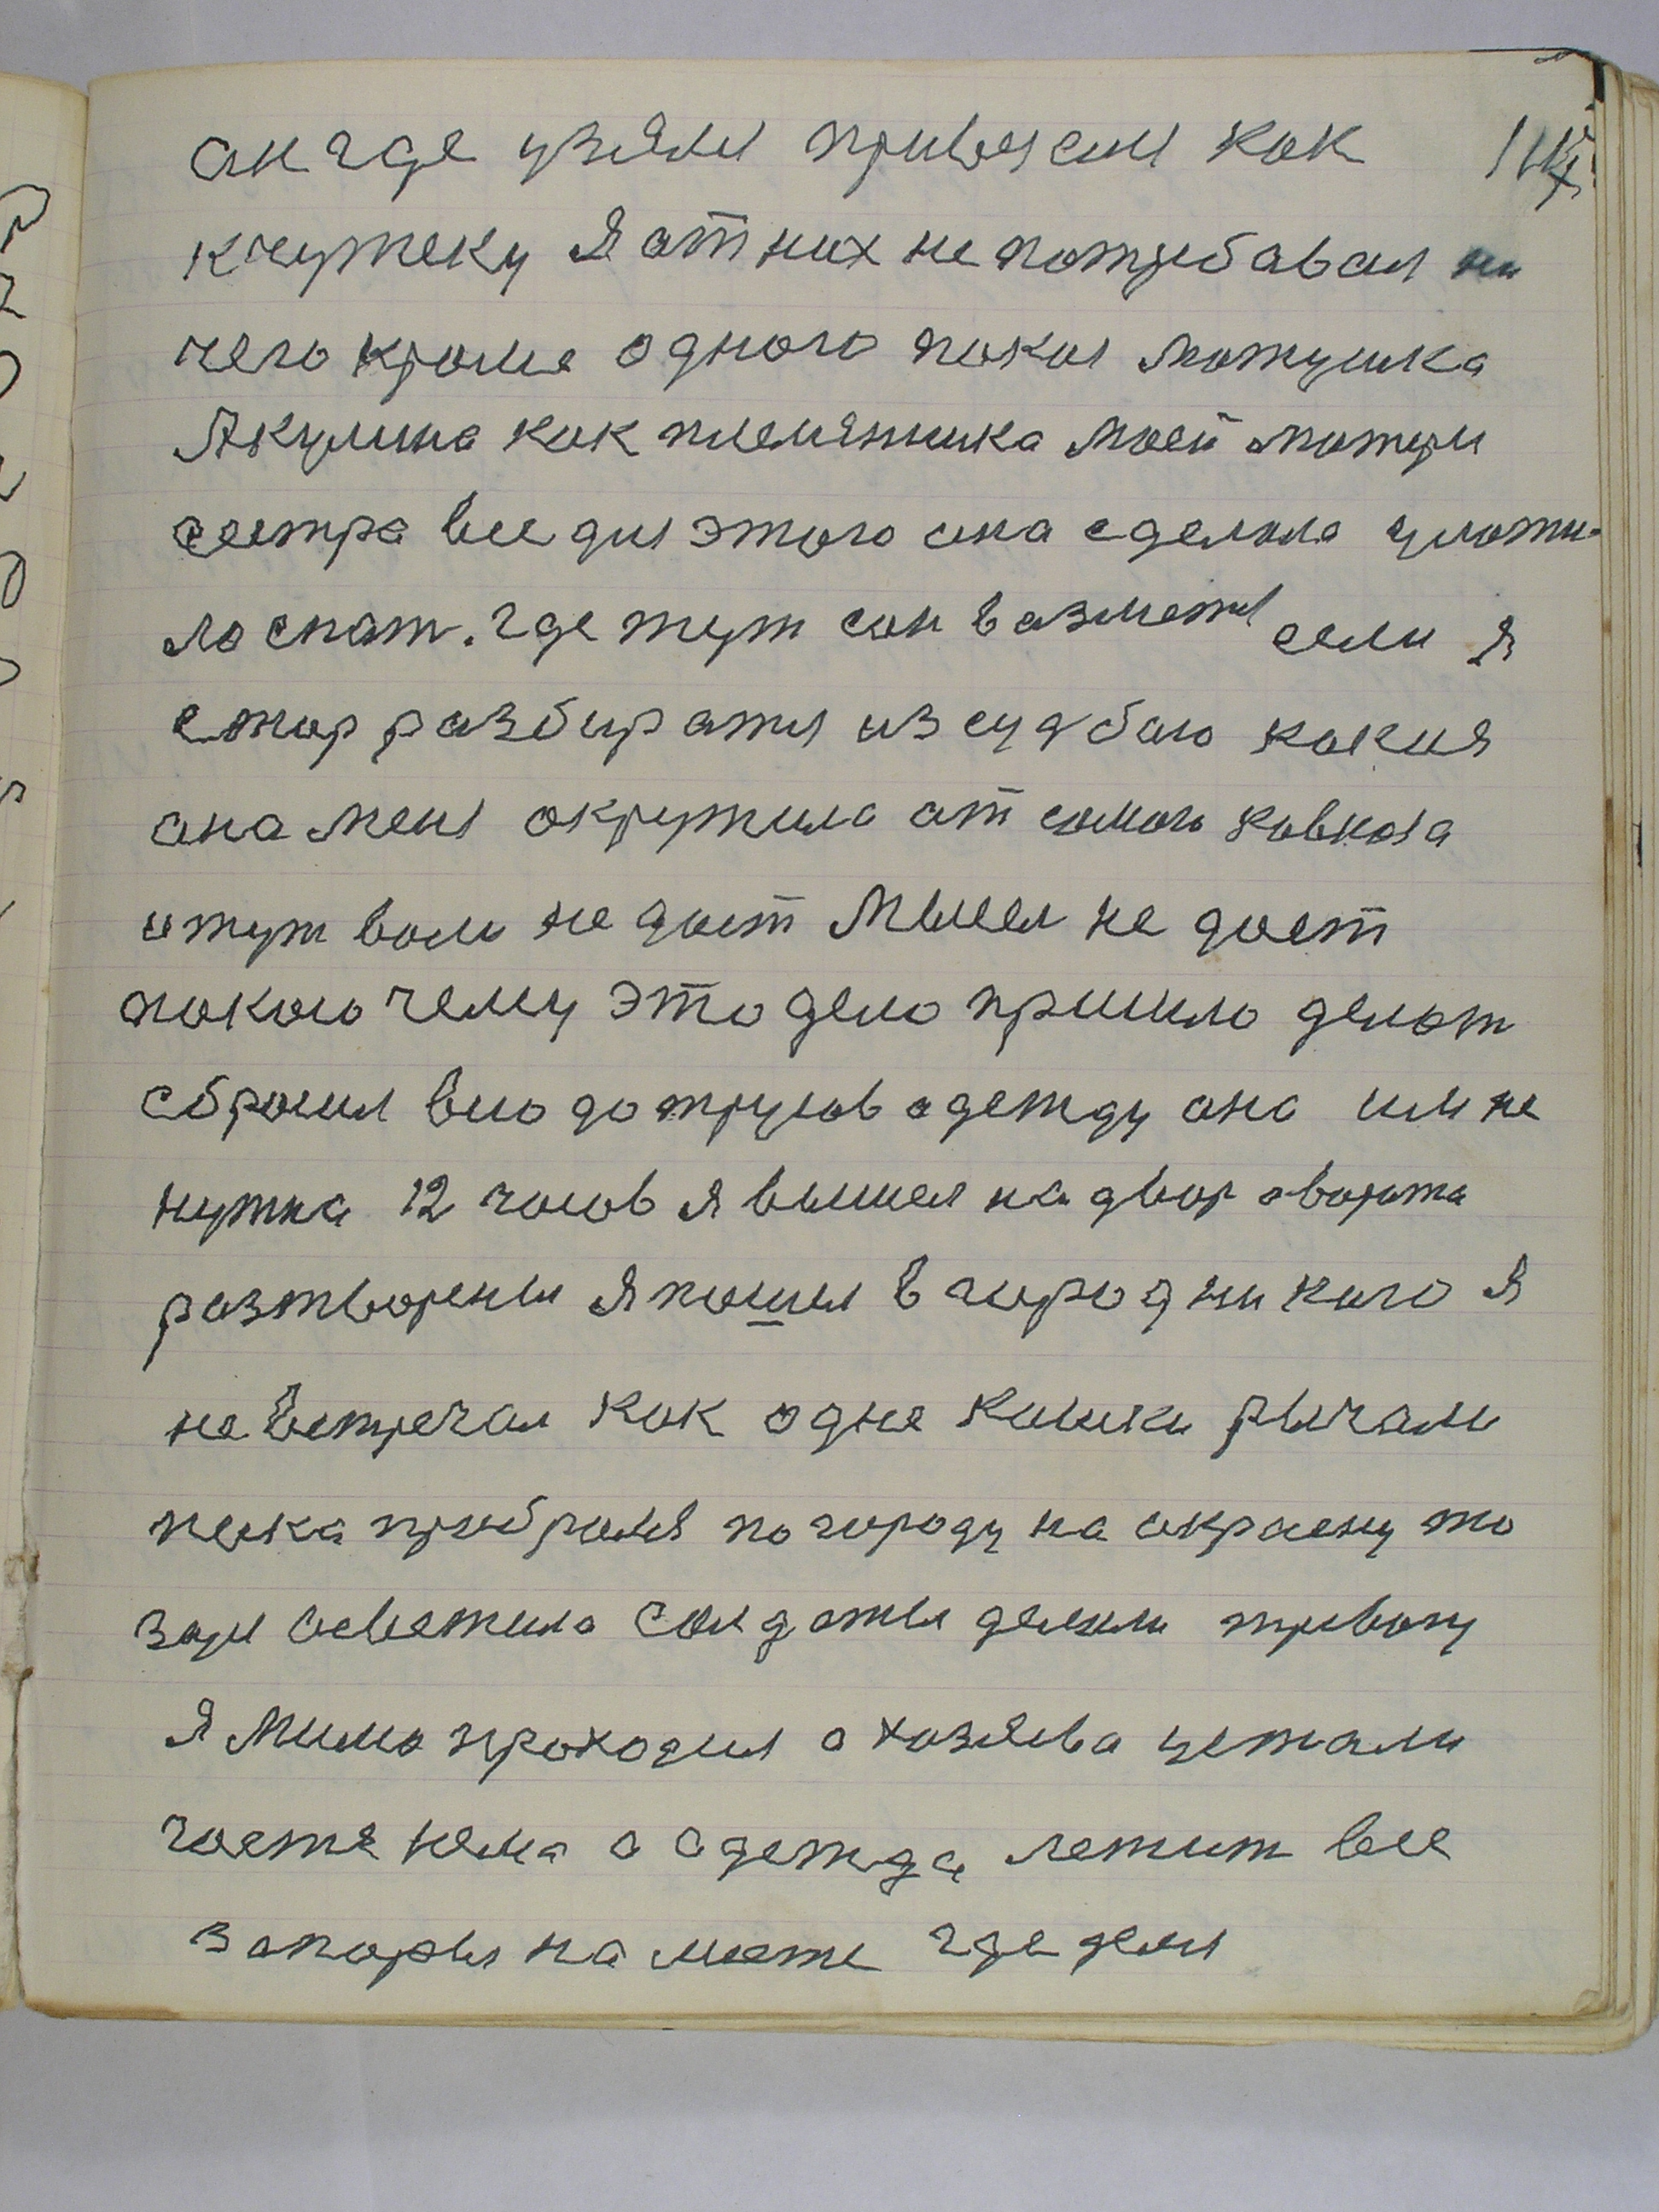 ани где узяли привезли как
кчужеку я атних не потребавал ни
чего кроме одного покоя матушка
Акулина как племяника моей матери
сестра все для этого она сделала уложи-
ла спат. где тут сон вазметя если я
стал разбиратя из судбаю какия
ана меня окружила ат самого кавказа
и тут воли не дает Мысел не дает
покою чему это дело пришло делат
сбросил всю до трусов адежду ана им не
нужна 12 часов я вышел на двор аворта
разтворены я пошел в город ни каго я
не встречал как одне кошки рычали
пока пробрался по городу на акраену то
заря асветила Салдаты делали тривогу
я мимо праходил а хазяева устали
гостя нема а адежда лежит все
запоры на месте где дел